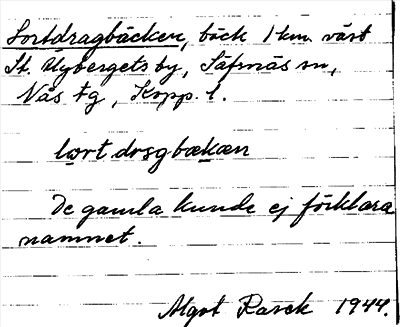 Lortdragbäcken, bäck 1 km. väst
St. Uvbergets by, Säfsnäs sn,
Näs tg, Kopp. l.
lort drogbækæn
De gamla kunde ej förklara
namnet.
Algot Rasck 1944.